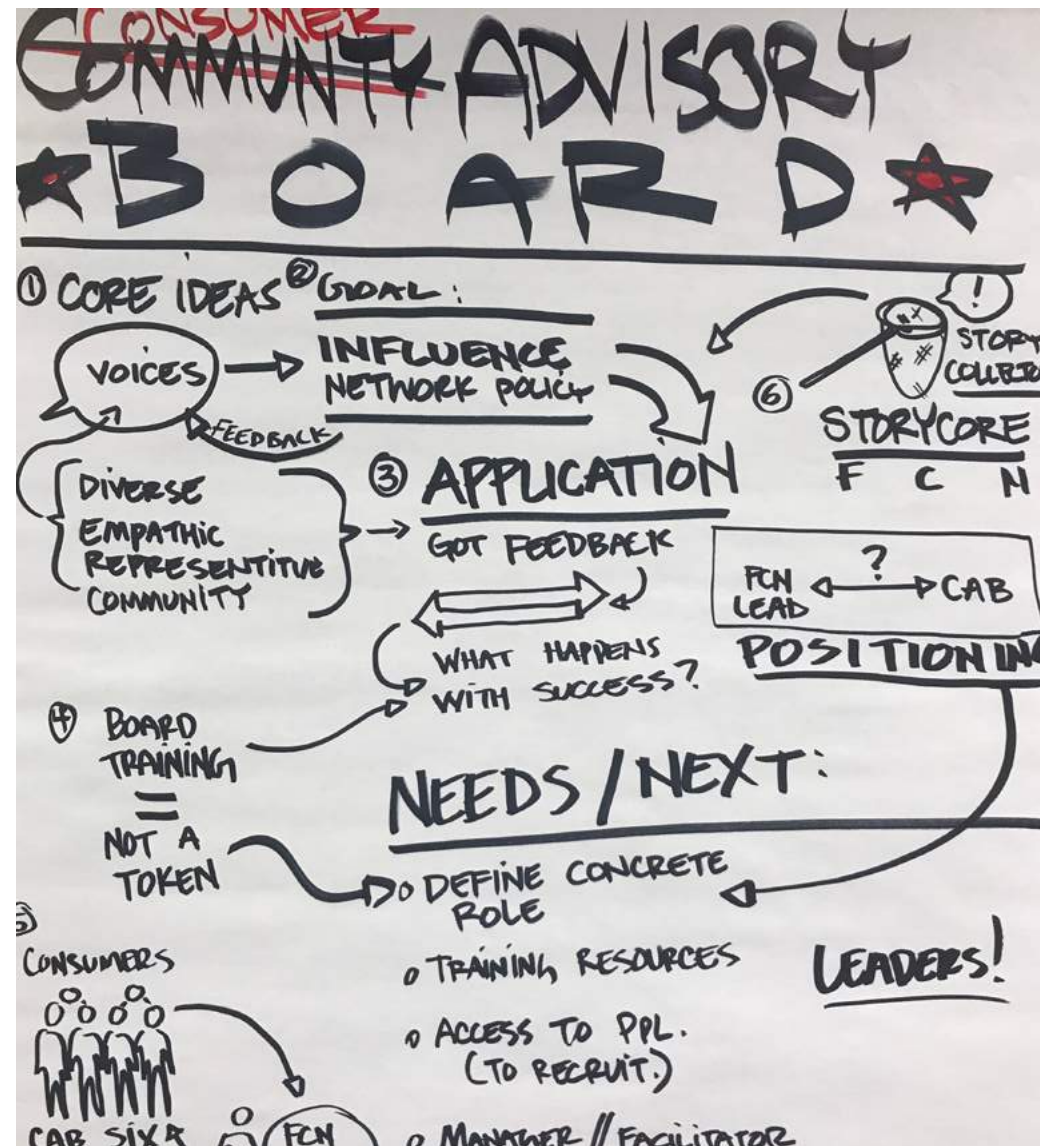 CONSUMER
COMMUNITY ADVISORY
BOARD
① CORE IDEAS
VOICES
FEEDBACK
DIVERSE
EMPATHIC
REPRESENTITIVE
COMMUNITY
② GOAL:
INFLUENCE
NETWORK POLICY
③ APPLICATION
GOT FEEDBACK
WHAT HAPPENS
WITH SUCCESS?
④ BOARD
TRAINING
=
NOT A
TOKEN
CONSUMERS
CAB SIX
FCN
⑥
!
STORY
STORYCORE
F C N
FCN
LEAD
?
CAB
POSITIONING
NEEDS / NEXT:
o DEFINE CONCRETE
ROLE
o TRAINING RESOURCES
o ACCESS TO PPL.
(TO RECRUIT.)
o MANAGER // FACILITATOR
LEADERS!